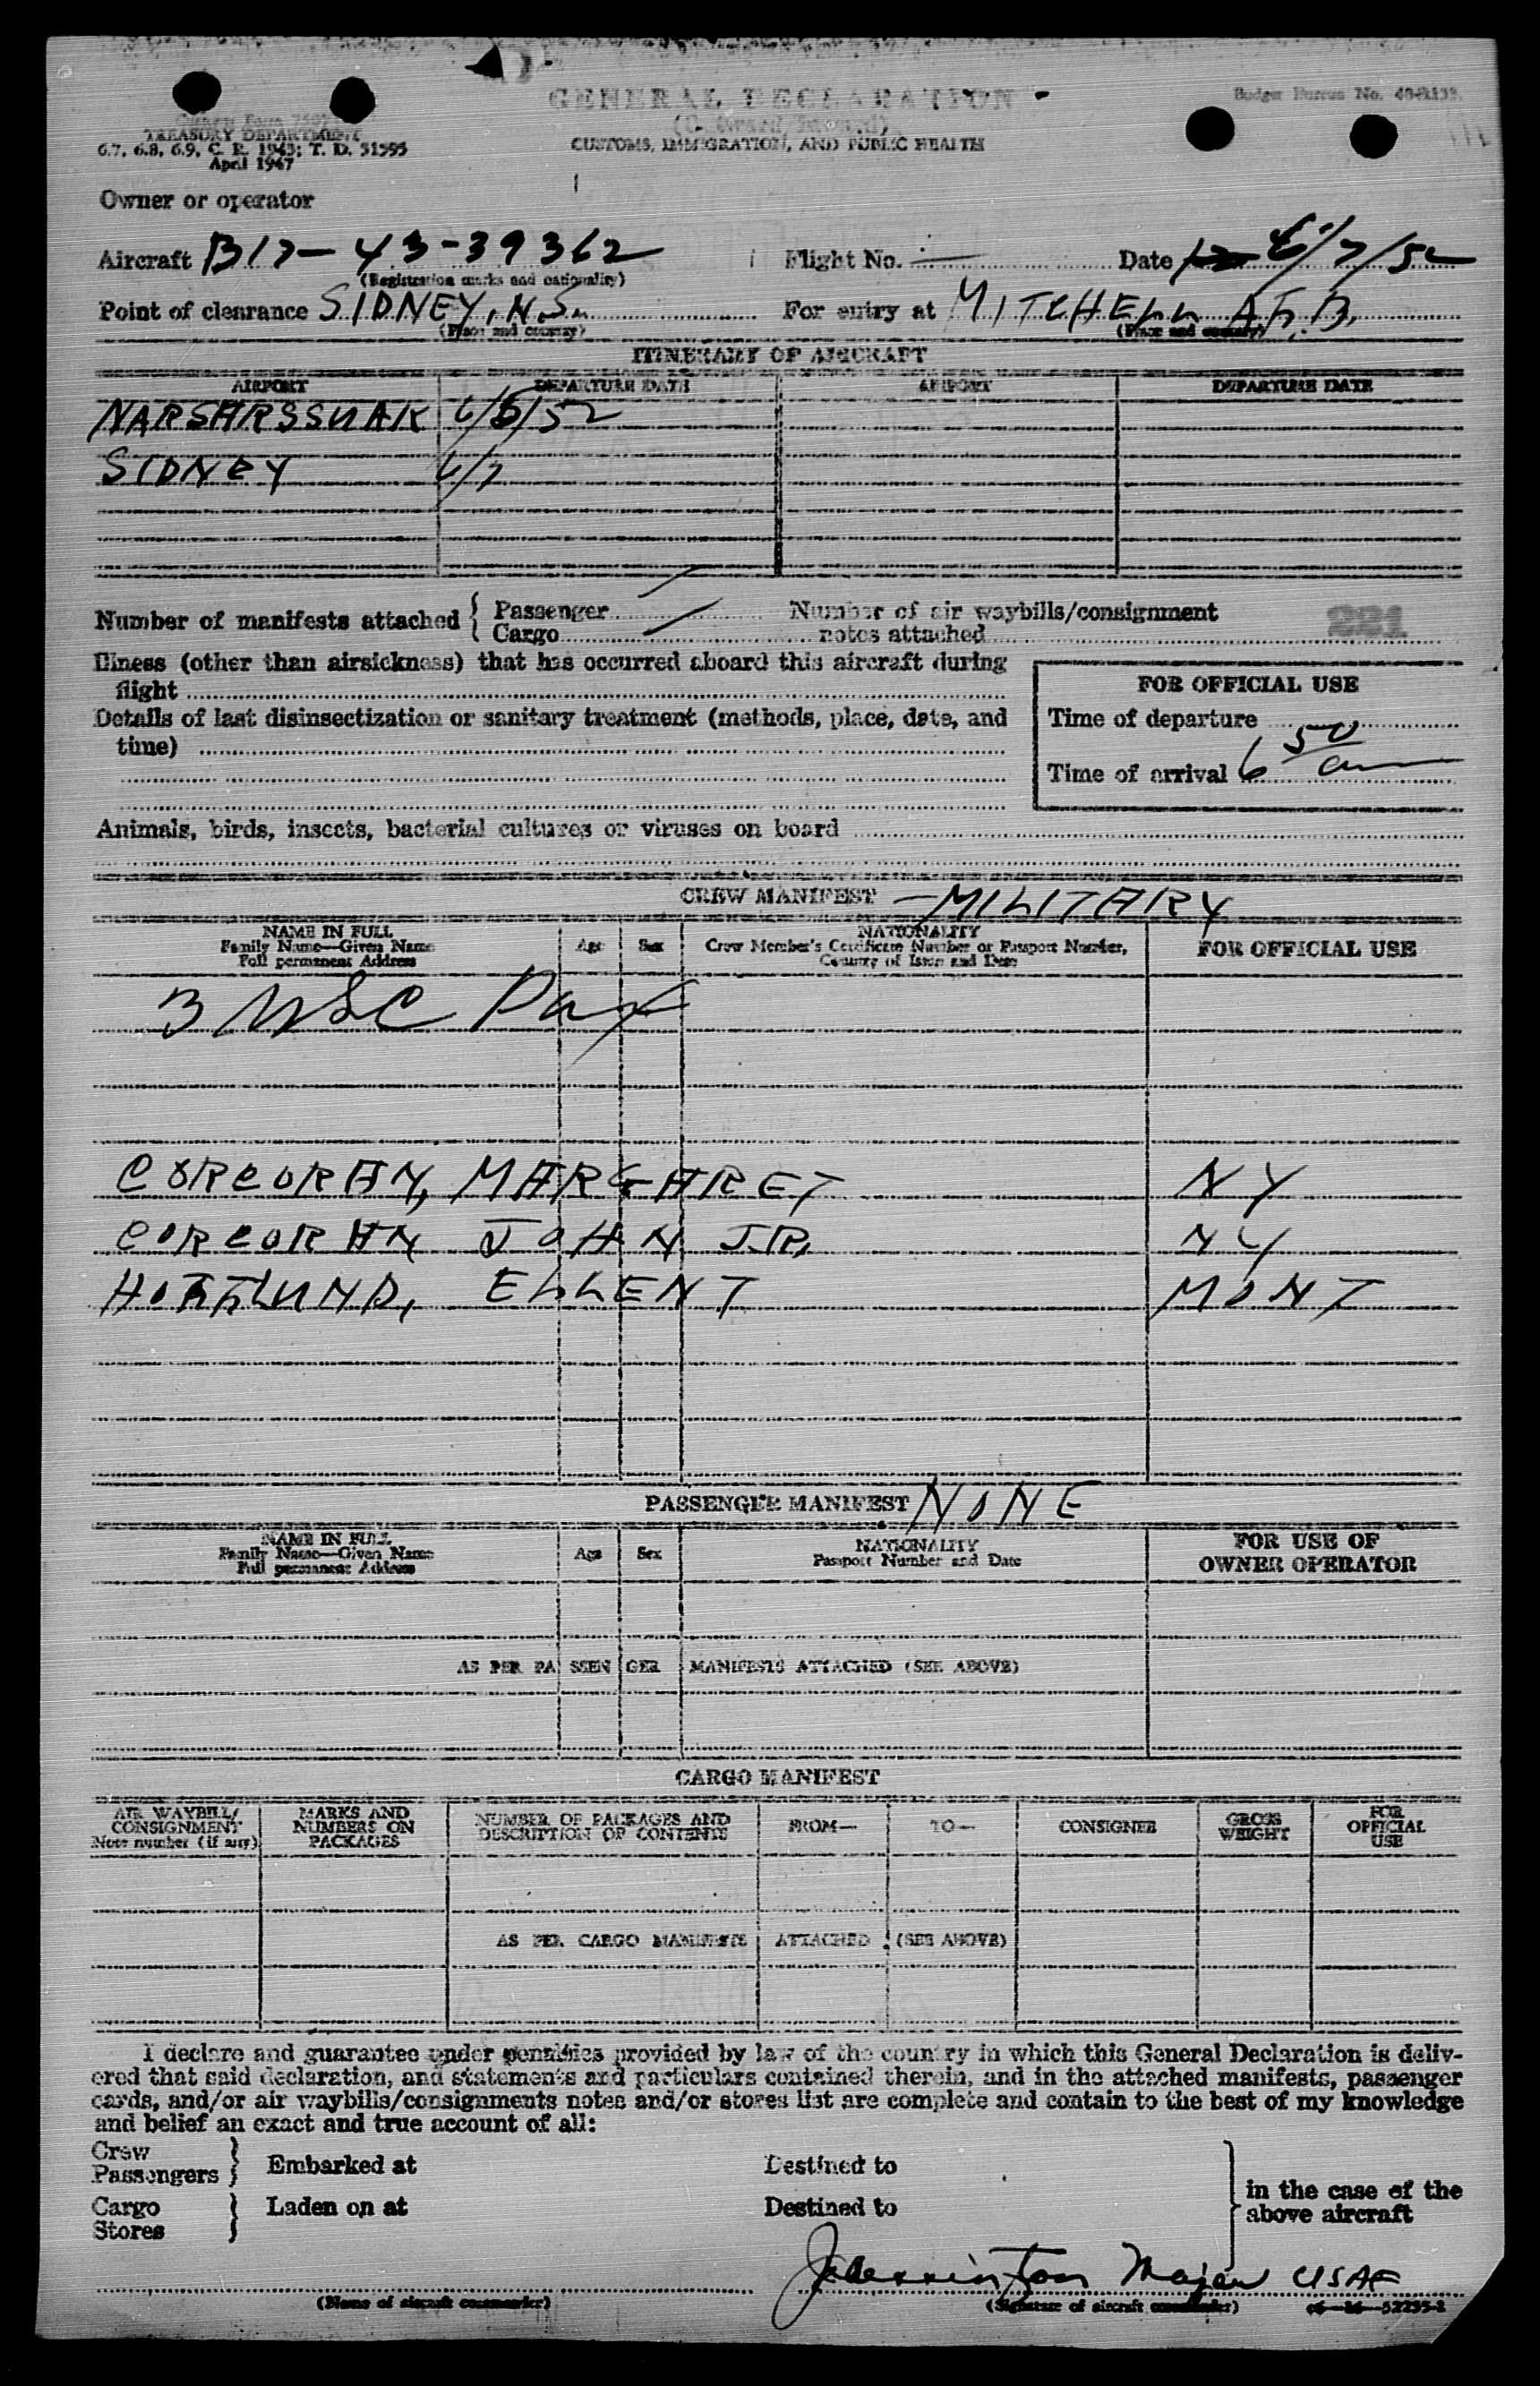 GENERAL DECLARATION
(Outward/Inward)
CUSTOMS, IMMIGRATION, AND PUBLIC HEALTH
Budget Bureau No.
Customs Form
TREASURY DEPARTMENT
6.7, 6.8, 6.9, C. R. 1943; T. D. 51595
April 1947
Owner or operator
Aircraft B17-43-39362 Flight No. — Date 6/7/52
(Registration marks and nationality)
Point of clearance SIDNEY, N.S. For entry at MITCHELL A.F.B.
(Place and country) (Place and country)
ITINERARY OF AIRCRAFT
AIRPORT DEPARTURE DATE AIRPORT DEPARTURE DATE
NARSARSSUAK 6/6/52
SIDNEY 6/7
Number of manifests attached { Passenger Number of air waybills/consignment 221
Cargo notes attached
Illness (other than airsickness) that has occurred aboard this aircraft during
flight
FOR OFFICIAL USE
Details of last disinsectization or sanitary treatment (methods, place, date, and
time)
Time of departure
Time of arrival 6 50 am
Animals, birds, insects, bacterial cultures or viruses on board
CREW MANIFEST — MILITARY
NAME IN FULL
Family Name—Given Name
Full permanent Address
Age Sex
NATIONALITY
Crew Member's Certificate Number or Passport Number,
Country of Issue and Date
FOR OFFICIAL USE
3 USC Pax
CORCORAN, MARGARET NY
CORCORAN JOHN JR. NY
HOFFLUND, ELLEN T MONT
PASSENGER MANIFEST NONE
NAME IN FULL
Family Name—Given Name
Full permanent Address
Age Sex
NATIONALITY
Passport Number and Date
FOR USE OF
OWNER OPERATOR
AS PER PASSENGER MANIFESTS ATTACHED (SEE ABOVE)
CARGO MANIFEST
AIR WAYBILL/
CONSIGNMENT
Note number (if any)
MARKS AND
NUMBERS ON
PACKAGES
NUMBER OF PACKAGES AND
DESCRIPTION OF CONTENTS
FROM— TO— CONSIGNEE
GROSS
WEIGHT
FOR
OFFICIAL
USE
AS PER CARGO MANIFESTS ATTACHED (SEE ABOVE)
I declare and guarantee under penalties provided by law of the country in which this General Declaration is deliv-
ered that said declaration, and statements and particulars contained therein, and in the attached manifests, passenger
cards, and/or air waybills/consignments notes and/or stores list are complete and contain to the best of my knowledge
and belief an exact and true account of all:
Crew
Passengers } Embarked at Destined to
in the case of the
above aircraft
Cargo
Stores } Laden on at Destined to
Major USAF
(Name of aircraft commander) (Signature of aircraft commander)